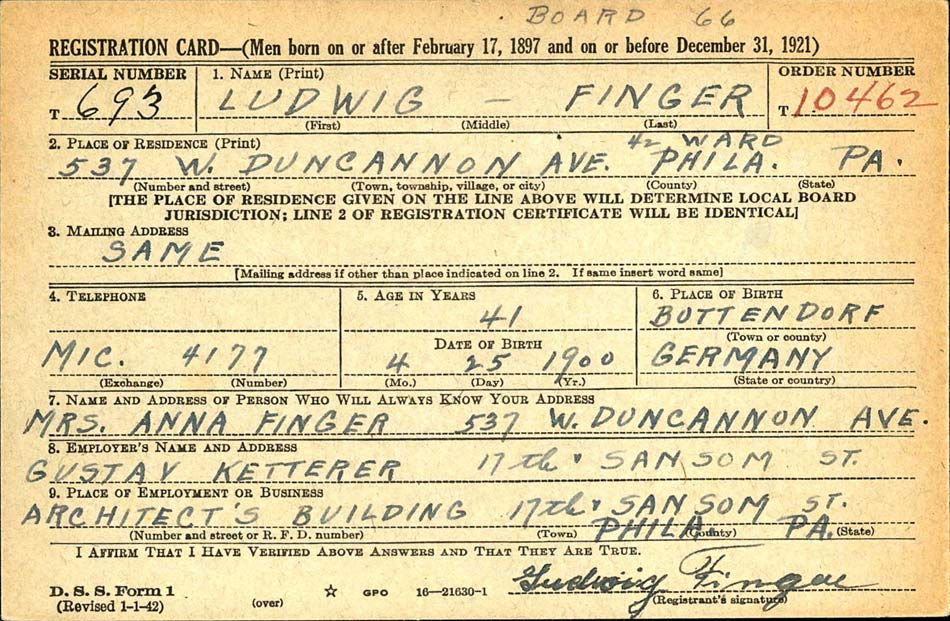 BOARD 66
REGISTRATION CARD—(Men born on or after February 17, 1897 and on or before December 31, 1921)
SERIAL NUMBER 1. NAME (Print) ORDER NUMBER
T 693 LUDWIG — FINGER T 10462
(First) (Middle) (Last)
2. PLACE OF RESIDENCE (Print) 42 WARD
537 W. DUNCANNON AVE. PHILA. PA.
(Number and street) (Town, township, village, or city) (County) (State)
[THE PLACE OF RESIDENCE GIVEN ON THE LINE ABOVE WILL DETERMINE LOCAL BOARD
JURISDICTION; LINE 2 OF REGISTRATION CERTIFICATE WILL BE IDENTICAL]
3. MAILING ADDRESS
SAME
[Mailing address if other than place indicated on line 2. If same insert word same]
4. TELEPHONE 5. AGE IN YEARS 6. PLACE OF BIRTH
41 BUTTENDORF
DATE OF BIRTH (Town or county)
MIC. 4177 4 25 1900 GERMANY
(Exchange) (Number) (Mo.) (Day) (Yr.) (State or country)
7. NAME AND ADDRESS OF PERSON WHO WILL ALWAYS KNOW YOUR ADDRESS
MRS. ANNA FINGER 537 W. DUNCANNON AVE.
8. EMPLOYER'S NAME AND ADDRESS
GUSTAV KETTERER 17th & SANSOM ST.
9. PLACE OF EMPLOYMENT OR BUSINESS
ARCHITECT'S BUILDING 17th & SANSOM ST.
PHILA. PA.
(Number and street or R. F. D. number) (Town) (County) (State)
I AFFIRM THAT I HAVE VERIFIED ABOVE ANSWERS AND THAT THEY ARE TRUE.
Ludwig Finger
D. S. S. Form 1
(Revised 1-1-42) (over) ☆ GPO 16—21630-1 (Registrant's signature)